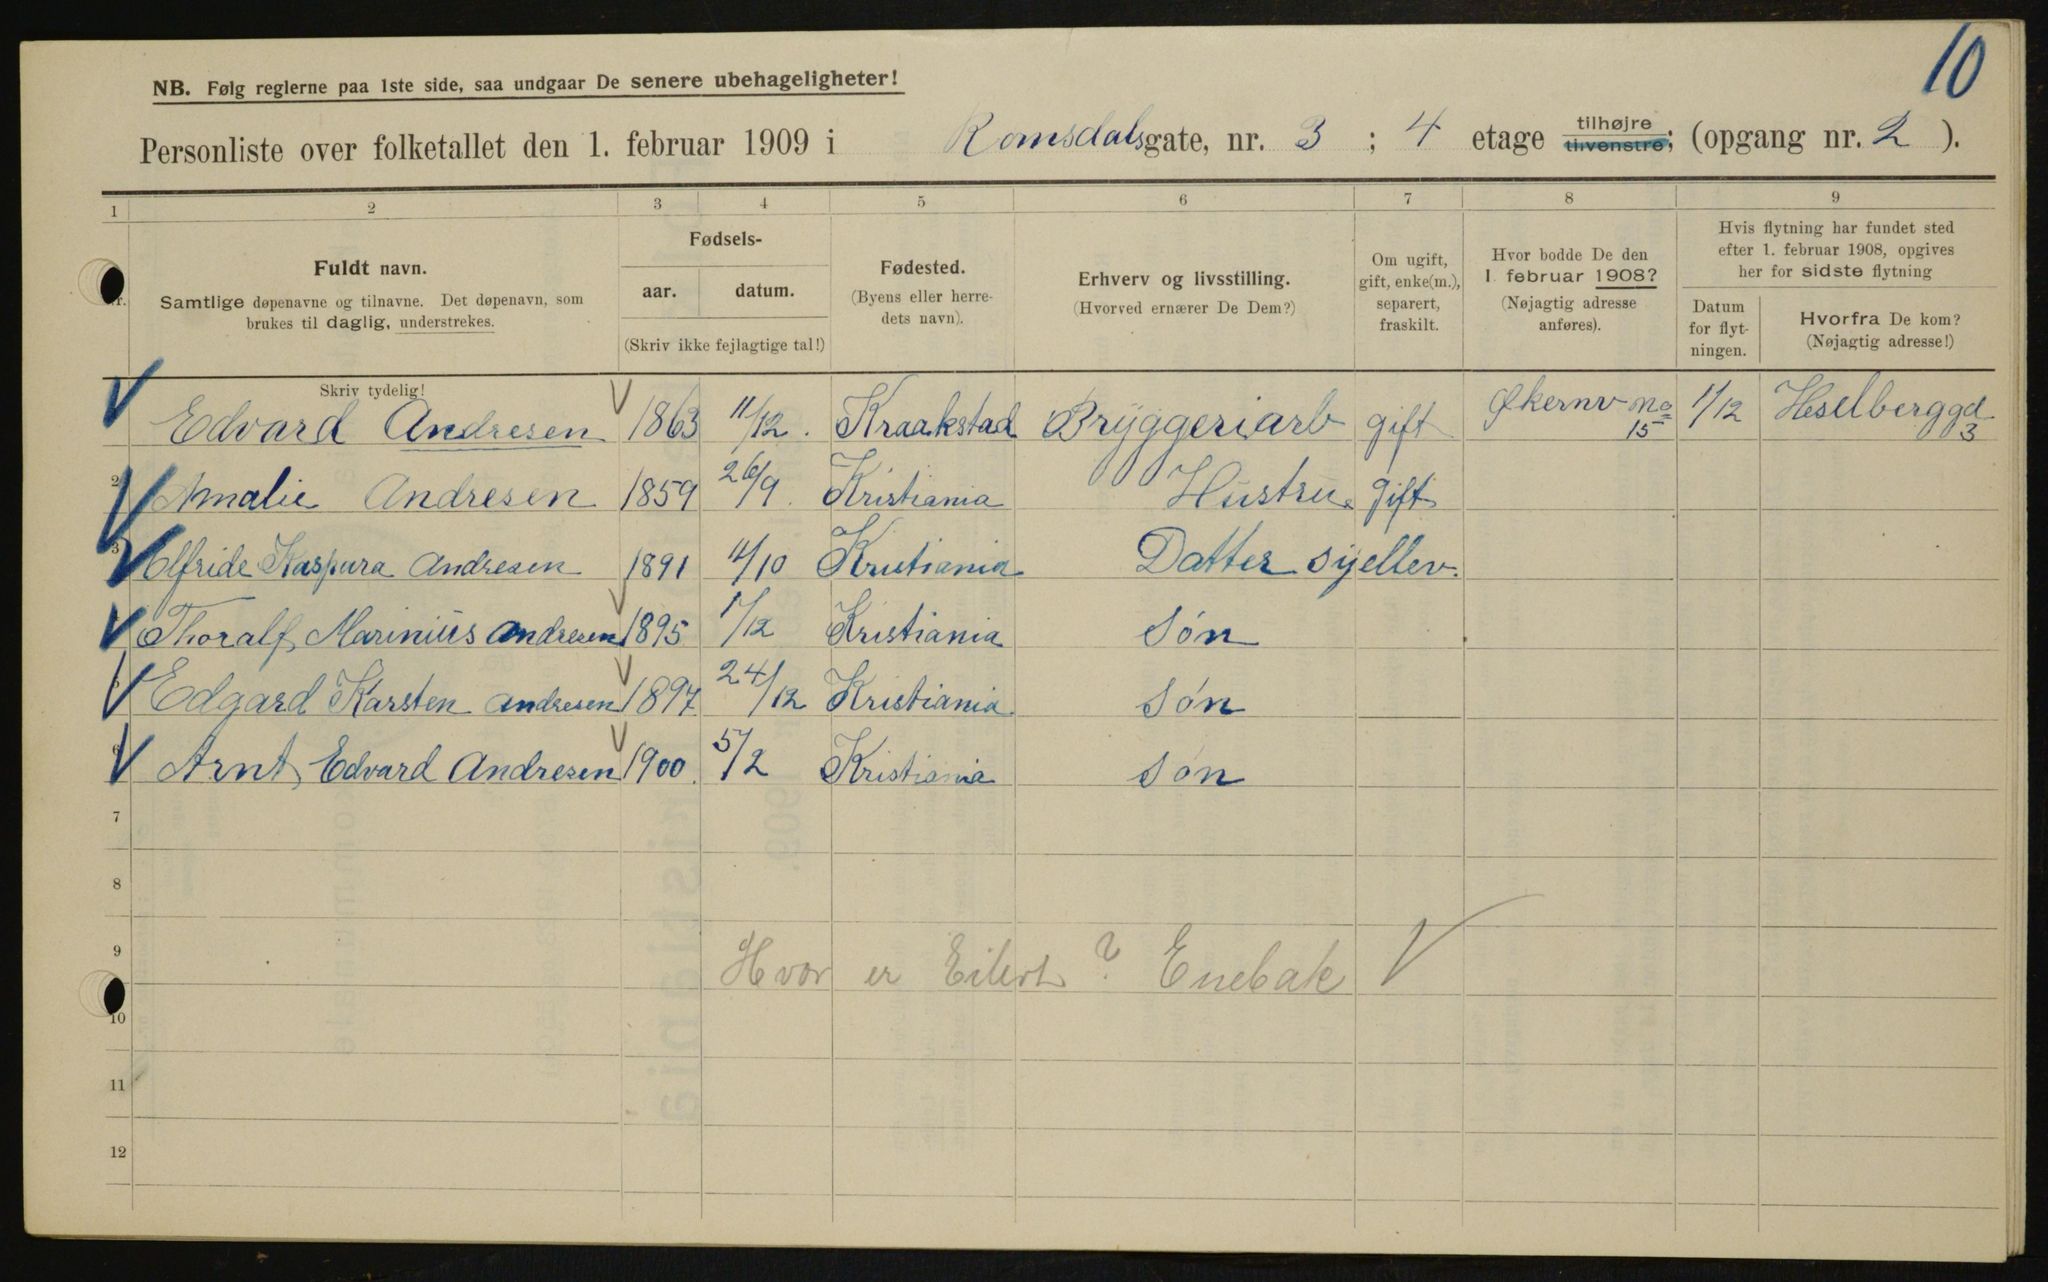 10
NB. Følg reglerne paa 1ste side, saa undgaar De senere ubehageligheter!
Personliste over folketallet den 1. februar 1909 i Romsdalsgate, nr. 3 ; 4 etage tilhøjre tilvenstre; (opgang nr. 2 ).
1 2 3 4 5 6 7 8 9
Nr.
Fuldt navn.
Samtlige døpenavne og tilnavne. Det døpenavn, som
brukes til daglig, understrekes.
Fødsels-
aar. datum.
(Skriv ikke fejlagtige tal!)
Fødested.
(Byens eller herre-
dets navn).
Erhverv og livsstilling.
(Hvorved ernærer De Dem?)
Om ugift,
gift, enke(m.),
separert,
fraskilt.
Hvor bodde De den
1. februar 1908?
(Nøjagtig adresse
anføres).
Hvis flytning har fundet sted
efter 1. februar 1908, opgives
her for sidste flytning
Datum
for flyt-
ningen.
Hvorfra De kom?
(Nøjagtig adresse!)
Skriv tydelig!
Edvard Andresen 1863 11/12. Kraakstad Bryggeriarb gift Økernv no 15 1/12 Heselberggd 3
2 Amalie Andresen 1859 26/9. Kristiania Hustru gift
3 Elfride Kaspara Andresen 1891 4/10 Kristiania Datter syellev.
Thoralf Marinius Andresen 1895 1/12 Kristiania Søn
Edgard Karsten Andresen 1897 24/12 Kristiania Søn
6 Arnt Edvard Andresen 1900 5/2 Kristiania Søn
7
8
9 Hvor er Eilert? Enebak
10
11
12